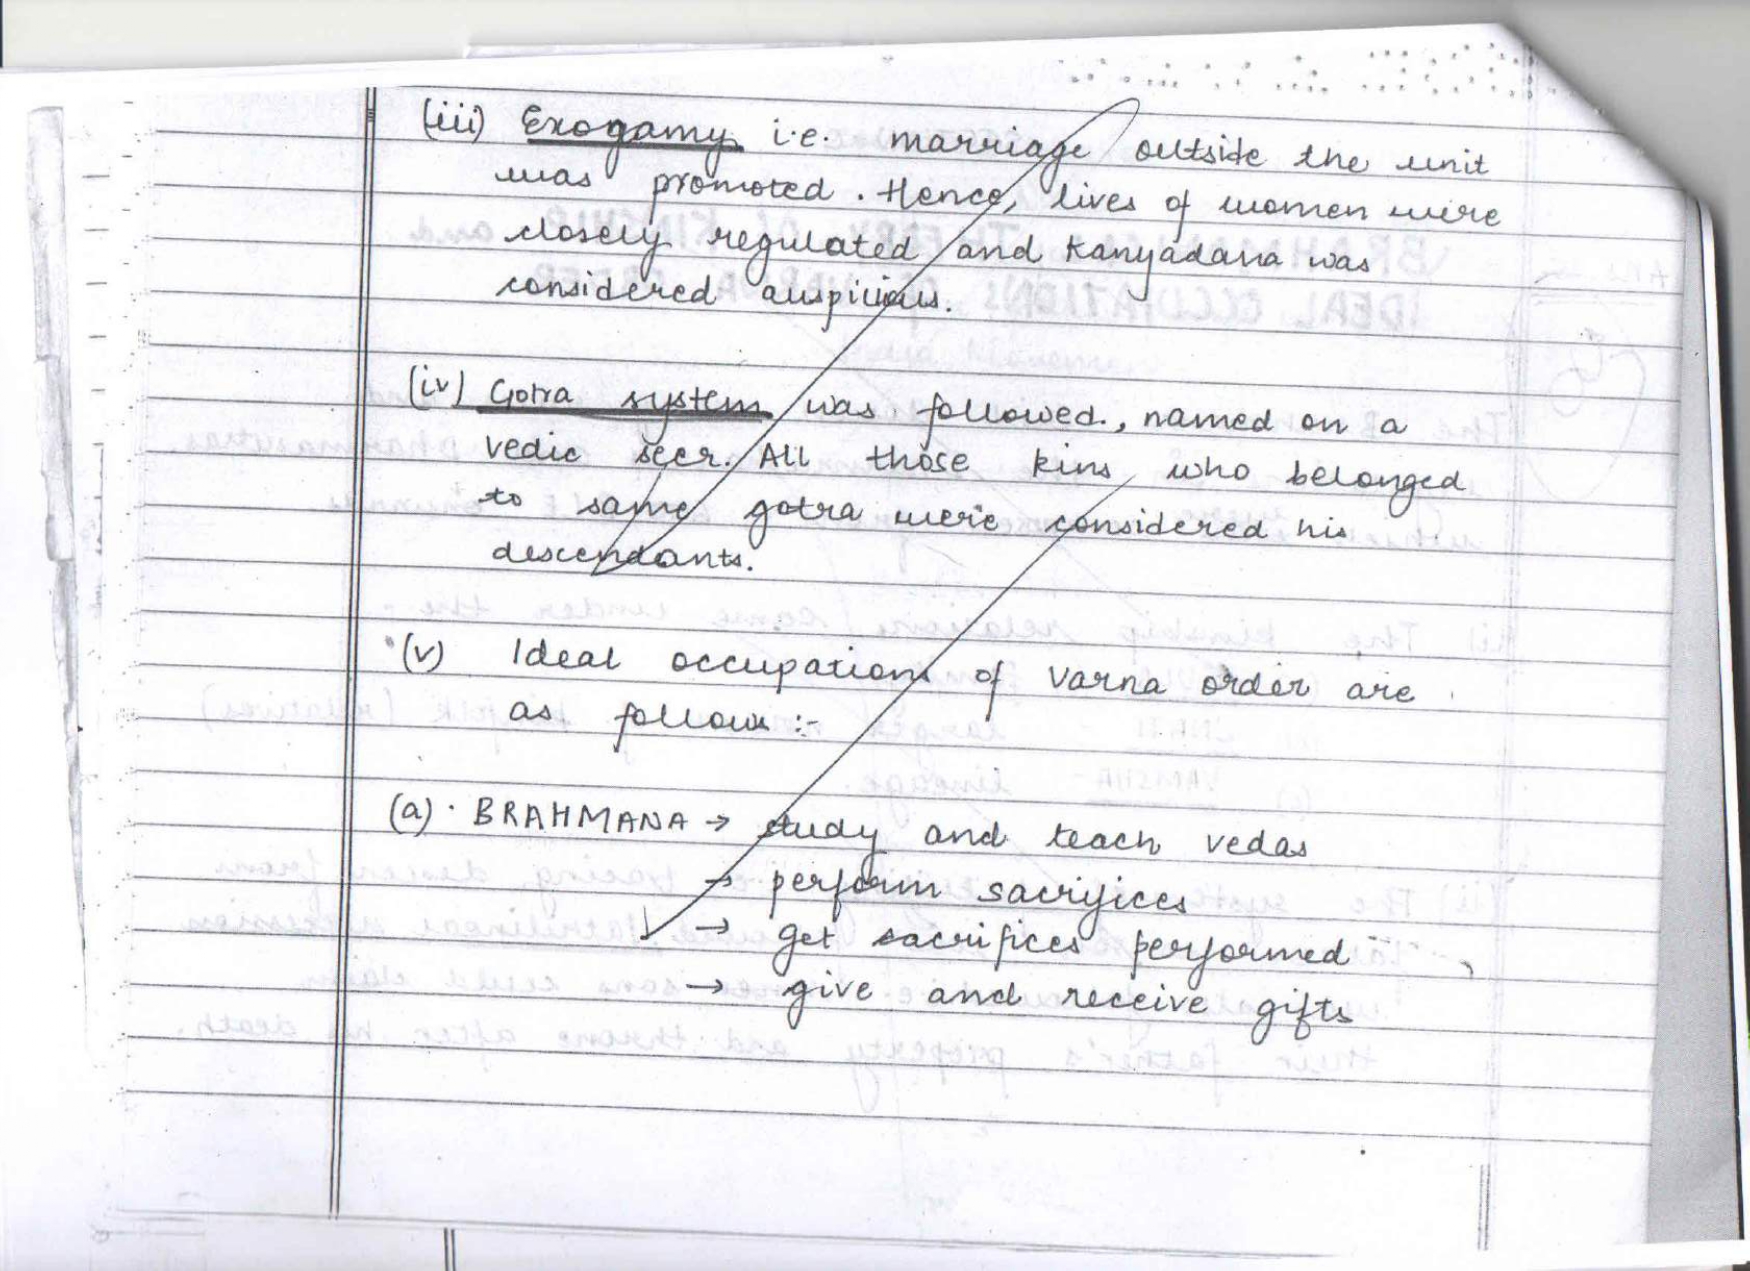 (iii) Exogamy i.e. marriage outside the unit
was promoted. Hence, lives of women were
closely regulated and Kanyadana was
considered auspicious.
(iv) Gotra system was followed, named on a
vedic seer. All those kins who belonged
to same gotra were considered his
descendants.
(v) Ideal occupations of varna order are
as follows :-
(a) BRAHMANA → study and teach vedas
→ perform sacrifices
→ get sacrifices performed
→ give and receive gifts